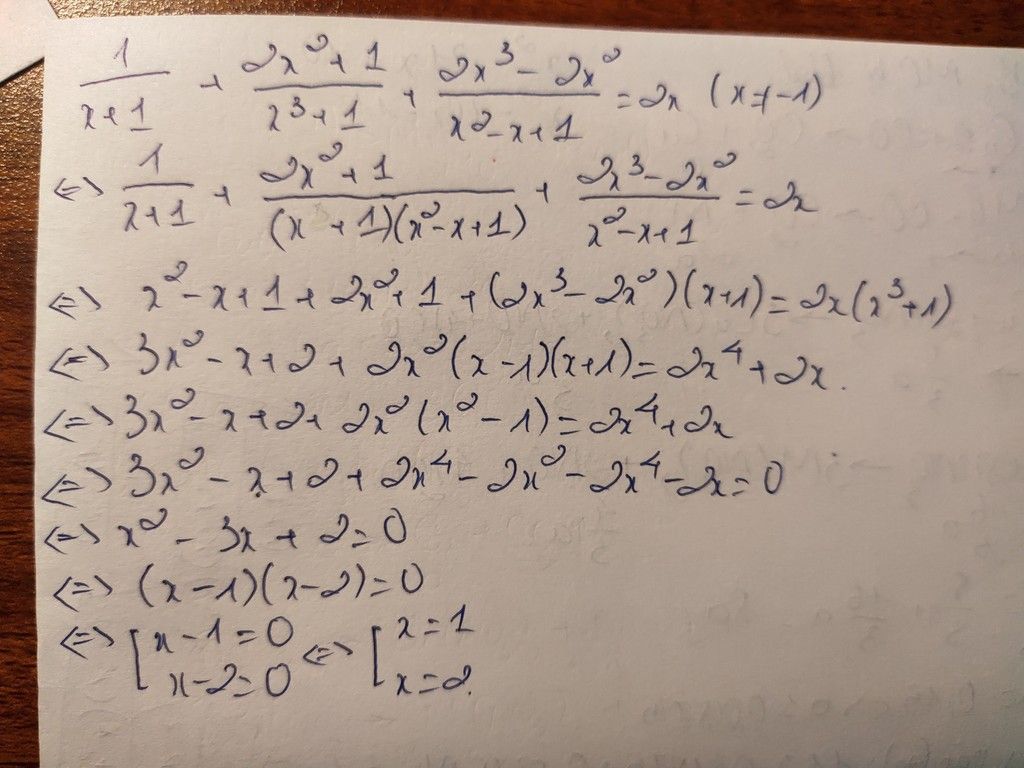 1/(x+1) + (2x²+1)/(x³+1) + (2x³-2x²)/(x²-x+1) = 2x (x≠-1)
<=> 1/(x+1) + (2x²+1)/((x+1)(x²-x+1)) + (2x³-2x²)/(x²-x+1) = 2x
<=> x²-x+1+2x²+1+(2x³-2x²)(x+1)=2x(x³+1)
<=> 3x²-x+2+2x²(x-1)(x+1)=2x⁴+2x.
<=> 3x²-x+2+2x²(x²-1)=2x⁴+2x
<=> 3x²-x+2+2x⁴-2x²-2x⁴-2x=0
<=> x²-3x+2=0
<=> (x-1)(x-2)=0
<=> [x-1=0 <=> [x=1
x-2=0 x=2.